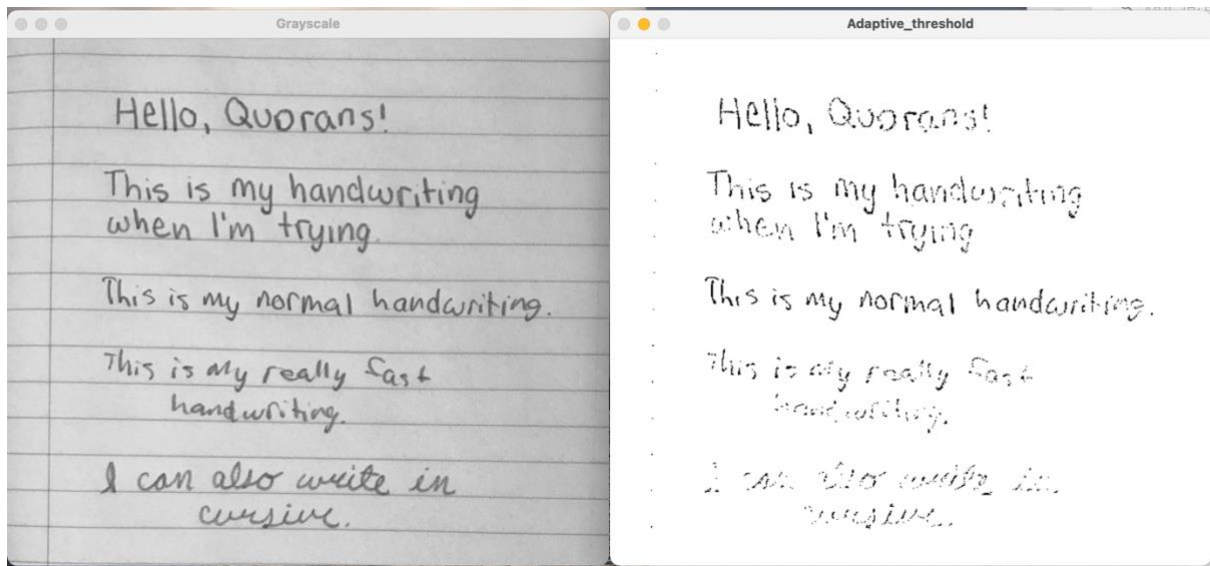 Grayscale
Hello, Quorans!
This is my handwriting
when I'm trying.
This is my normal handwriting.
This is my really fast
handwriting.
I can also write in
cursive.
Adaptive_threshold
Hello, Quorans!
This is my handwriting
when I'm trying
This is my normal handwriting.
This is my really fast
handwriting.
I can also write in
cursive.